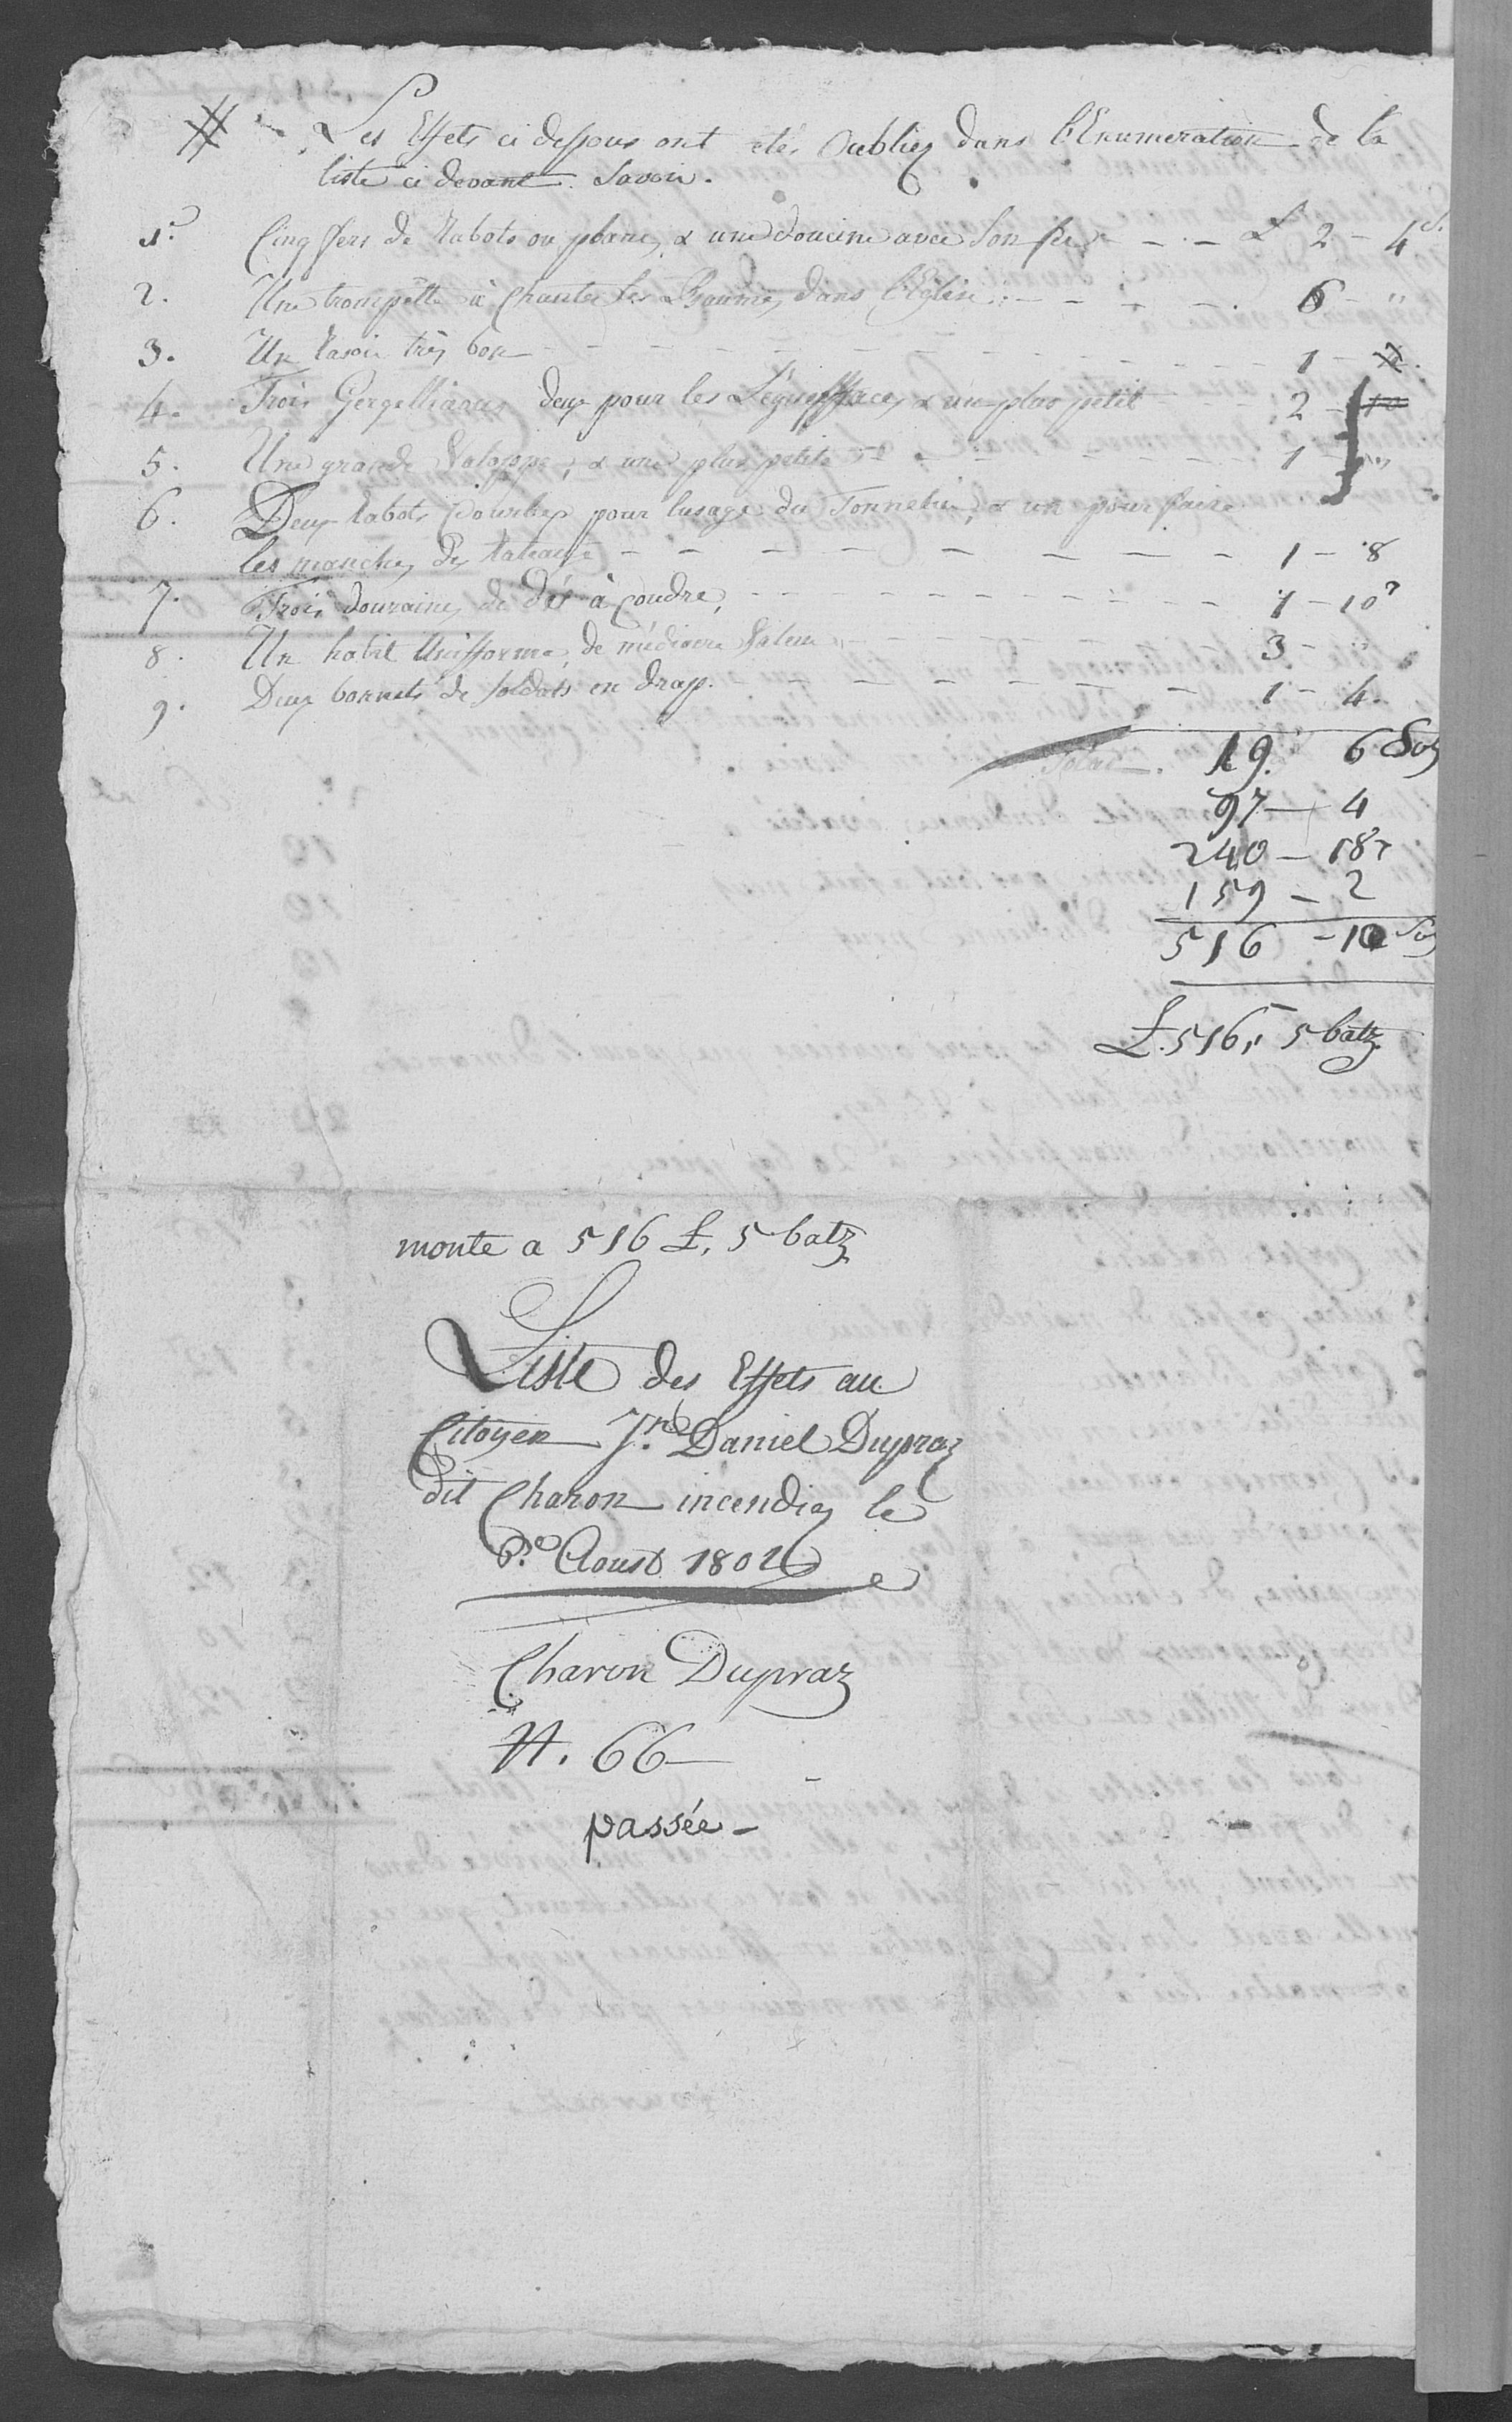 # Les Effets ci dessous ont étés Oubliez dans l'Enumeration de la
liste ci devant Savoir.
1° Cinq fers de Rabots ou plane, & une doucine avec Son fer - - - £ 2 - 4 s.
2. Une trompette à Chanter les Psaumes dans l'Eglise - - - - 6 - "
3. Un Rasoir très bon - - - - 1 -
4. Trois deux pour les & un plus petit - - 2 - 10
5. Une grande Valoppe, & une plus petite - - - - 1 - "
6. Deux Rabots Courbes pour lusage du Tonnelier, & un pour faire
les manches des Rateaux - - - - - - - - 1 - 8
7. Trois douzaines de Dés à Coudre, - - - - - - - 1 - 10
8. Un habit Uniforme, de médiocre Valeur - - - - - - 3 - "
9. Deux bonnets de Soldats en drap. - - - - - - 1 - 4
Total. 19. 6 Sos
97 - 4
240 - 18
159 - 2
516 - 10 Sos
£. 516, 5 batz.
monte a 516 £, 5 batz
Liste des Effets au
Citoyen Jn. Daniel Dupraz
dit Charon incendiez le
Aoust 1802
Charon Dupraz
N. 66
passée -